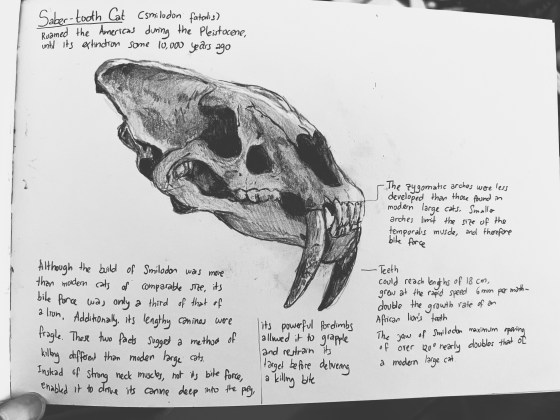 Saber-tooth Cat (smilodon fatalis)
Roamed the Americas during the Pleistocene,
until its extinction some 10,000 years ago
The zygomatic arches were less
developed than those found in
modern large cats. Smaller
arches limit the size of the
temporalis muscle, and therefore
bite force
Teeth
could reach lengths of 18 cm,
grew at the rapid speed 6mm per month-
double the growth rate of an
African lion's teeth
The jaw of Smilodon maximum opening
of over 120° nearly doubles that of
a modern large cat
Although the build of Smilodon was more
than modern cats of comparable size, its
bite force was only a third of that of
a lion. Additionally, its lengthy canines were
fragile. These two facts suggest a method of
killing different than modern large cats.
Instead of strong neck muscles, not its bite force,
enabled it to drive its canine deep into the prey,
its powerful forelimbs
allowed it to grapple
and restrain its
target before delivering
a killing bite